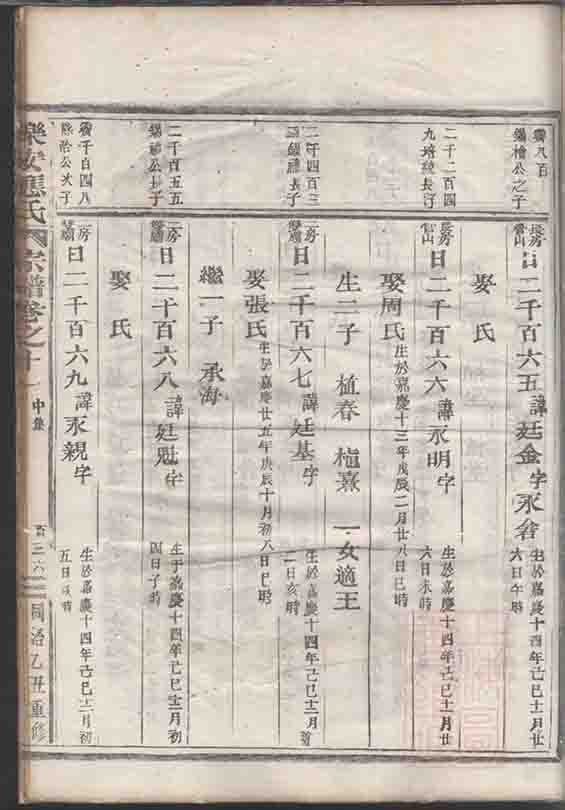 鏘檜公之子
長房
日二千百六五諱廷金字永
生於嘉慶十四年己巳十二月廿
六日午時
娶 氏
二千二百四
九 長子
長房
日二千百六六諱永明字
生於嘉慶十四年己巳十二月廿
六日未時
娶周氏
生於嘉慶十三年戊辰二月廿八日巳時
生二子 植春 植熹 一女適王
二千四百三
長子
二房
日二千百六七諱廷基字
生於嘉慶十四年己巳十二月
二日亥時
娶張氏
生於嘉慶廿五年庚辰十月初八日巳時
繼一子 承海
二千百五五
公長子
二房
日二千百六八諱廷魁字
生于嘉慶十四年己巳十二月初
四日子時
娶 氏
千百四八
公次子
二房
日二千百六九諱永親字
生於嘉慶十四年己巳十二月初
五日亥時
樂安應氏宗譜卷之十 中
百三六
同治乙丑重修